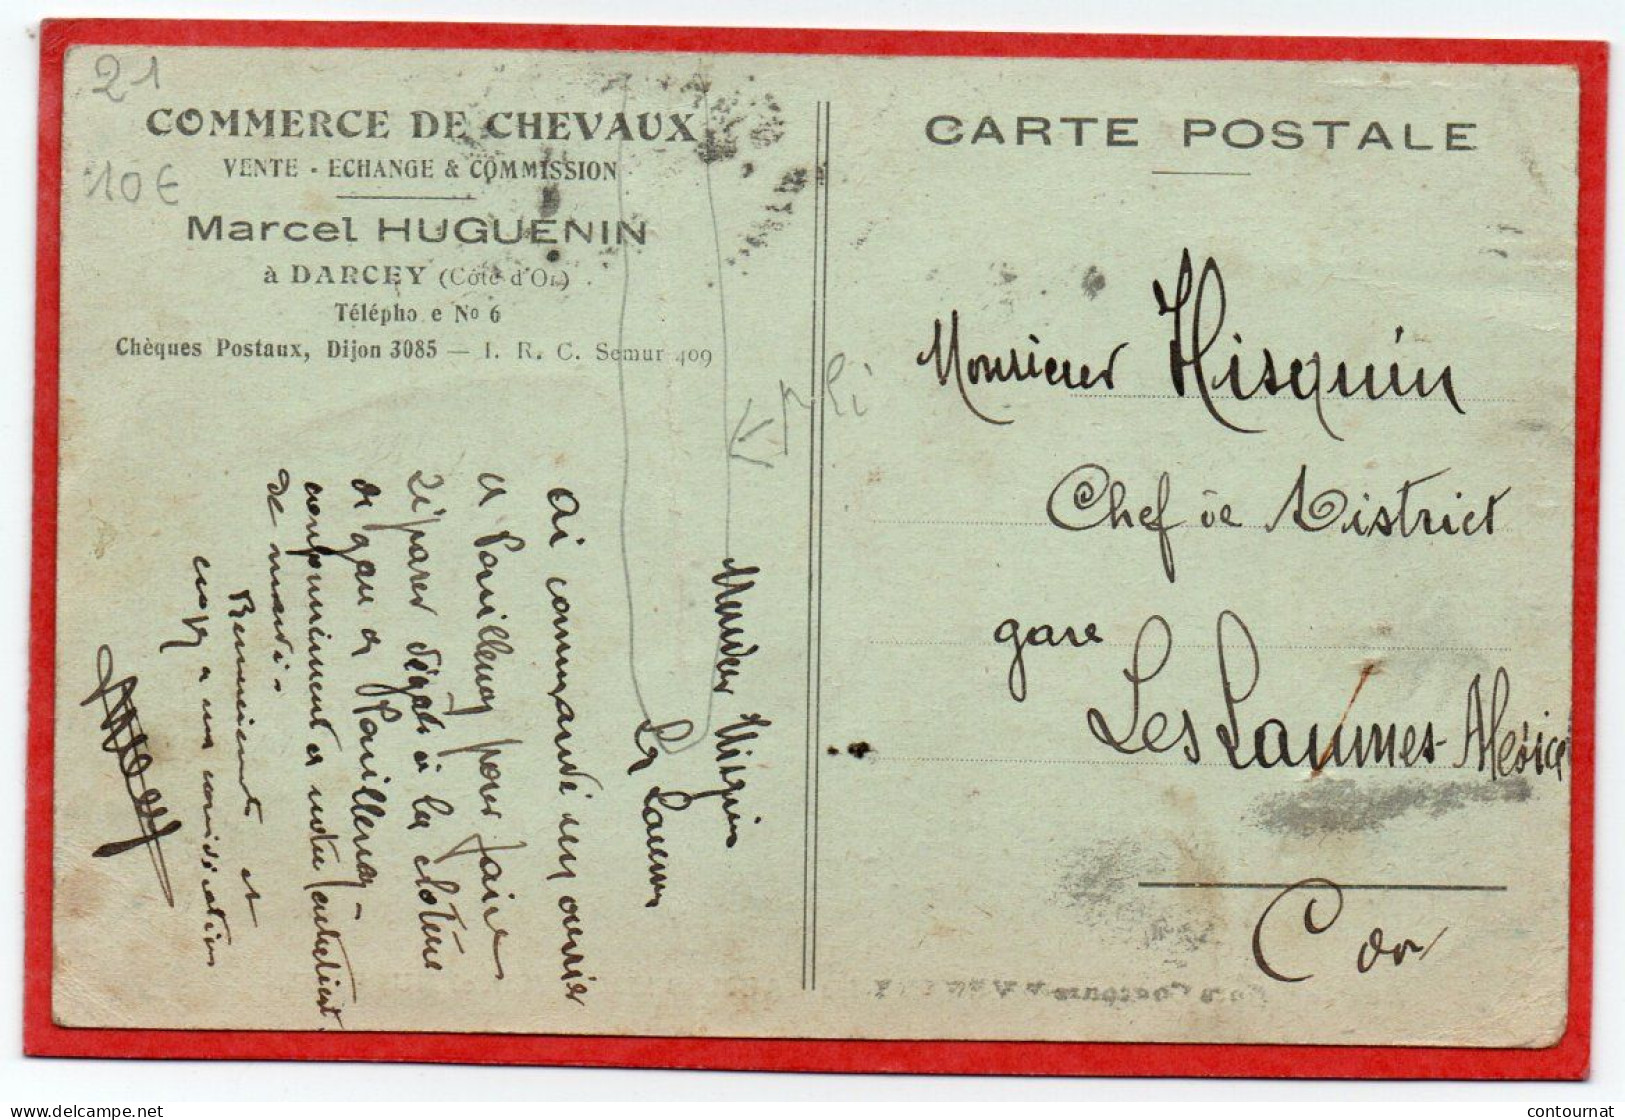 21
COMMERCE DE CHEVAUX
VENTE - ECHANGE & COMMISSION
10€
Marcel HUGUENIN
à DARCEY (Côte-d'Or)
Télépho e No 6
Chèques Postaux, Dijon 3085 — I. R. C. Semur 409
pli
Monsieur
Les Laumes
Ai commandé un ouvrier
à Pouillenay pour faire
réparer dégats à la clôture
de gau à Pouillenay -
conformément à notre entretient
de mardi.
Remerciements et
CARTE POSTALE
Monsieur Hisquin
Chef de District
gare
Les Laumes-Alésia
C Or
www.delcampe.net
contournat